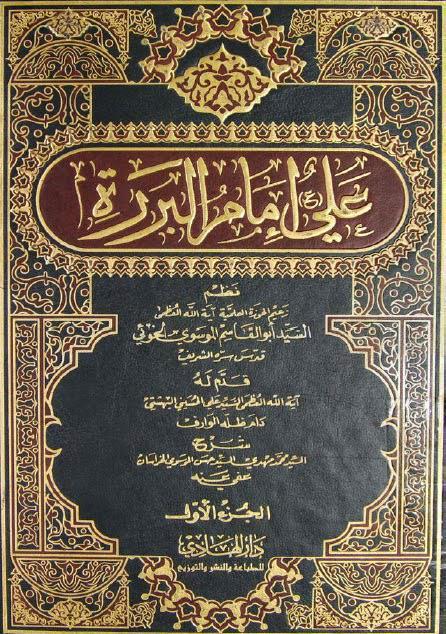 علي (ع) إمام البررة
نظم
زعيم الحوزة العلمية آية الله العظمى
السيد أبو القاسم الموسوي الخوئي
قدس سره الشريف
قدم له
آية الله العظمى السيد علي الحسيني البهشتي
دام ظله الوارف
شرح
السيد محمد مهدي السيد حسن الموسوي الخرسان
عفي عنه
الجزء الأول
دار الهادي
للطباعة والنشر والتوزيع